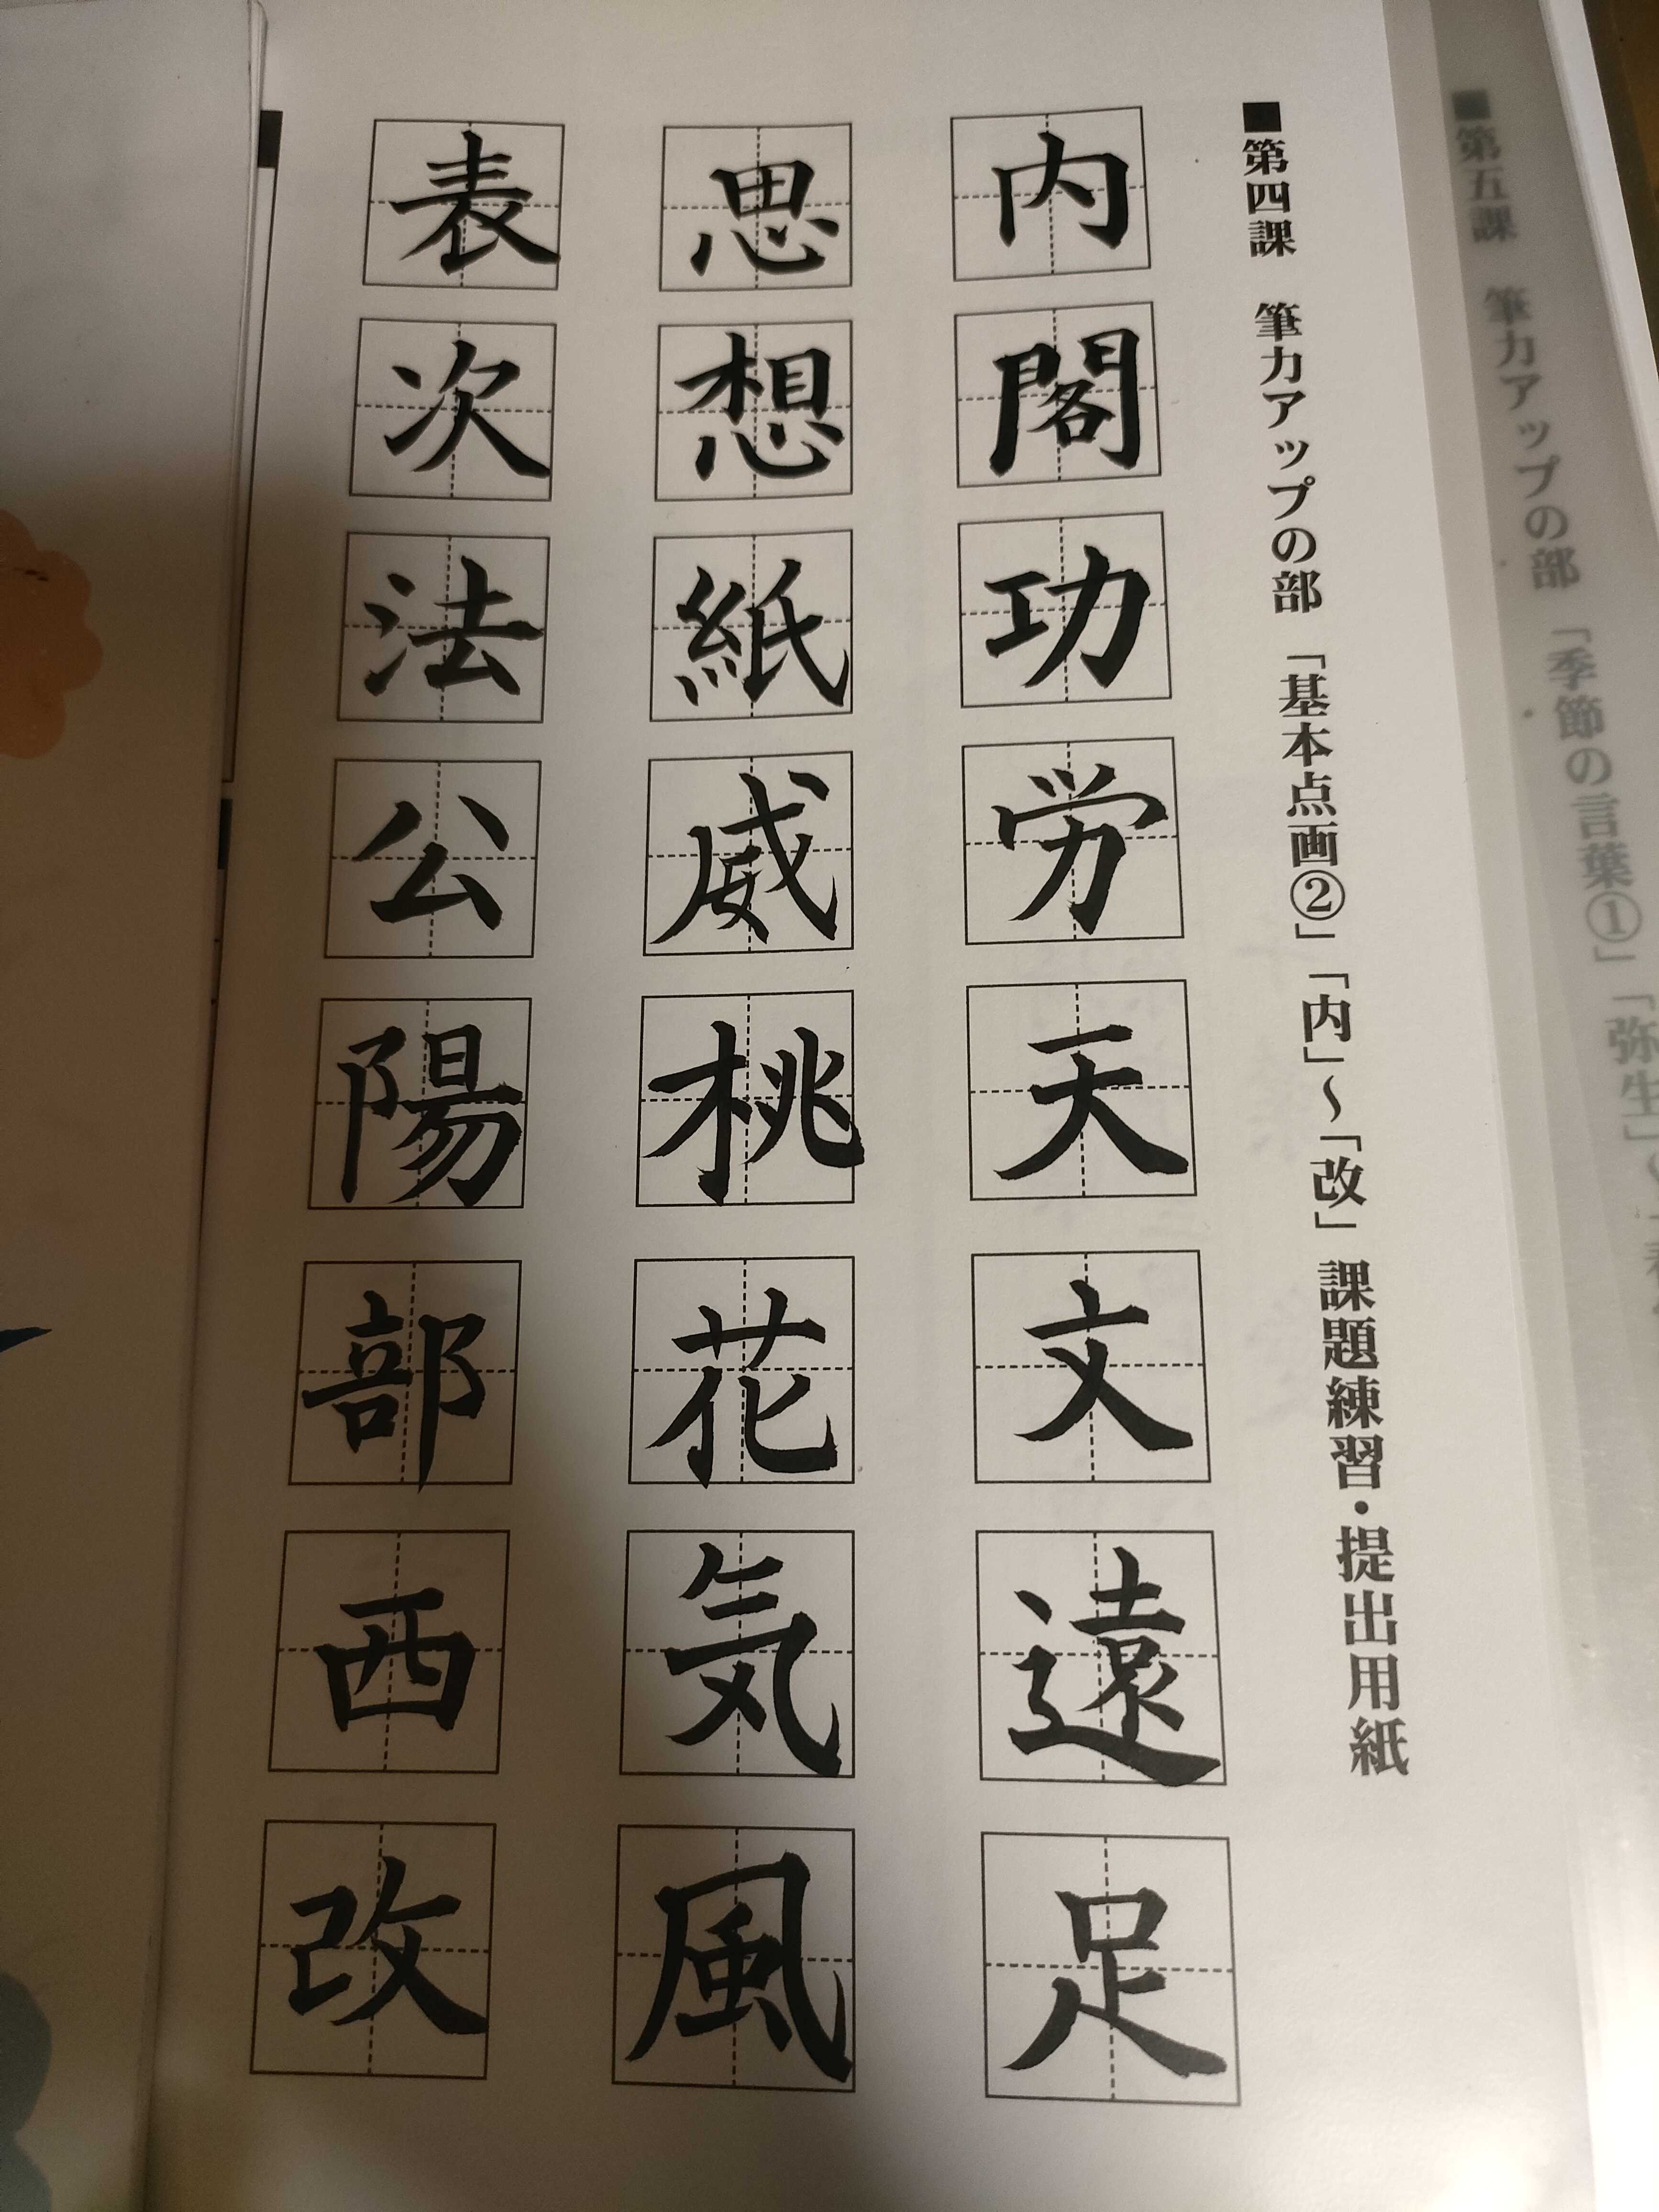 ■第五課　筆力アップの部　「季節の言葉①」「弥生」
■第四課　筆力アップの部　「基本点画②」「内」～「改」　課題練習・提出用紙
内閣功労天文遠足
思想紙威桃花気風
表次法公陽部西改